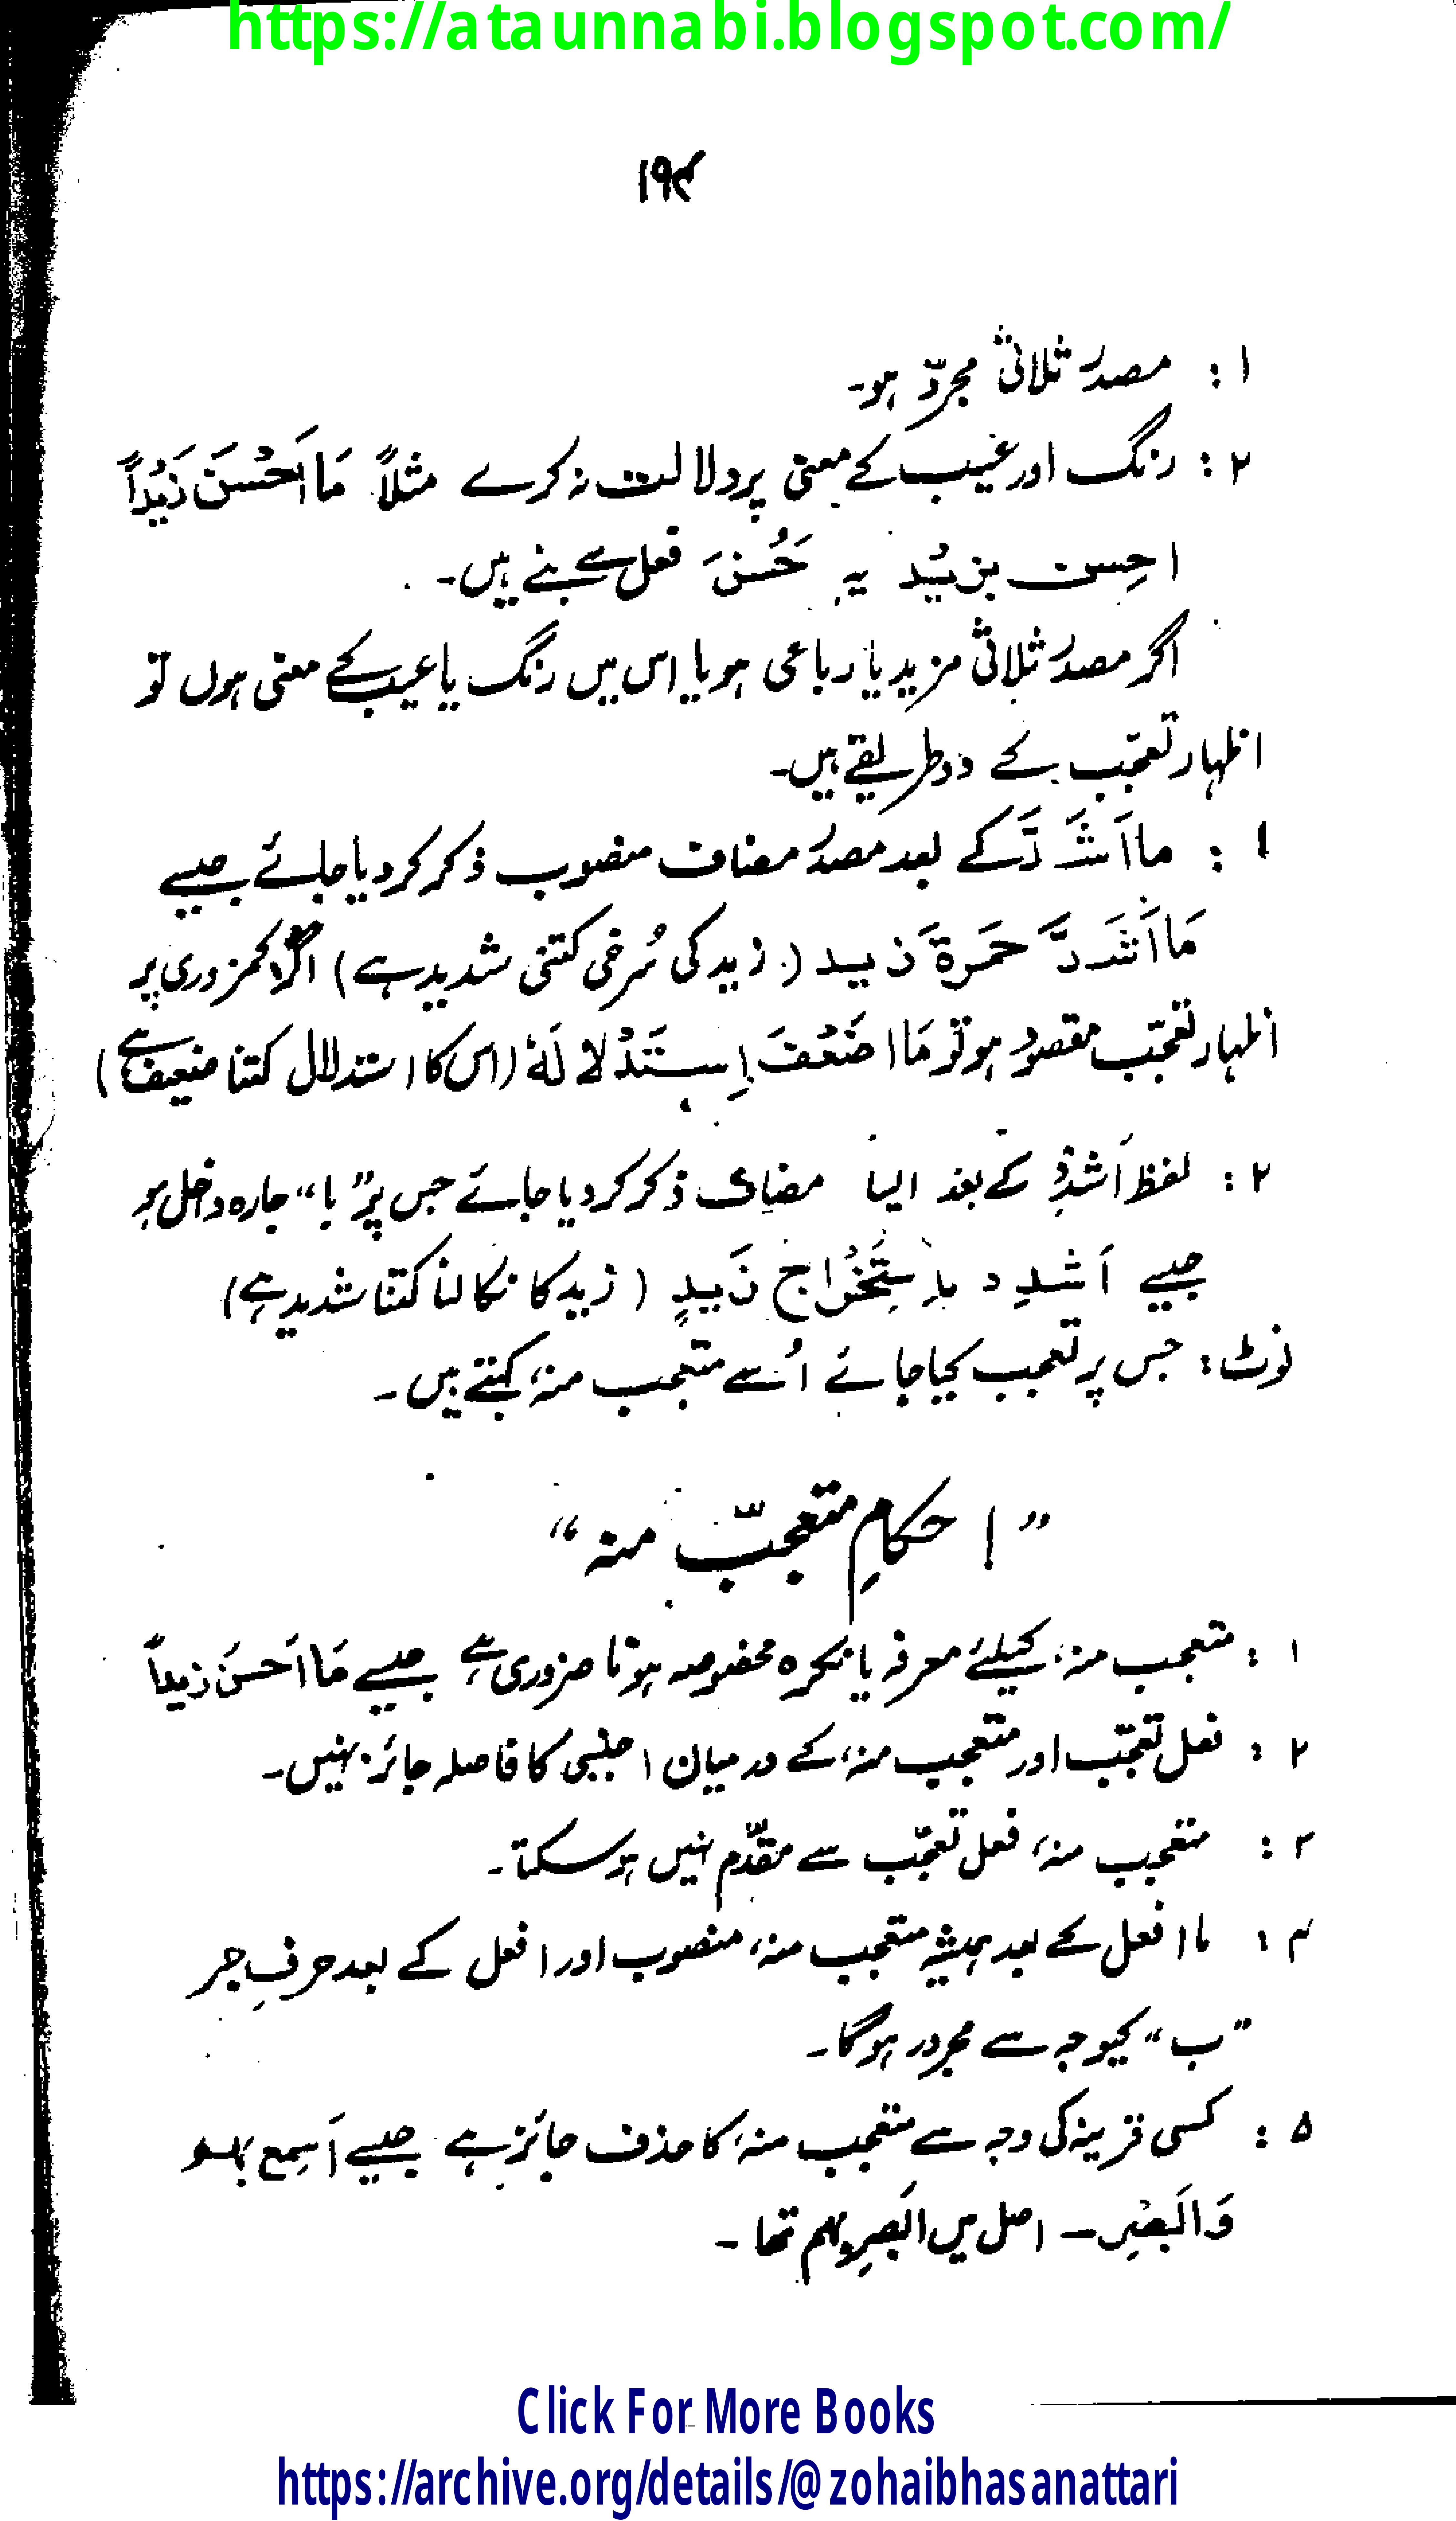 https://ataunnabi.blogspot.com/
۱۹۴
۱ : مصدر ثلاثی مجردّ ہو۔
۲ : رنگ اور عیب کے معنی پر دلالت نہ کرے مثلاً مَا اَحْسَنَ زَیْداً
احسِن بزیْد یہ حَسُنَ فعل سے بنے ہیں۔
اگر مصدر ثلاثی مزید یا رباعی ہو یا اس میں رنگ یا عیب کے معنی ہوں تو
اظہار تعجّب کے دو طریقے ہیں۔
۱ : ما اَشَدَّ کے بعد مصدر مضاف منصوب ذکر کر دیا جائے جیسے
مَا اَشَدَّ حمَرۃَ زید (زید کی سُرخی کتنی شدید ہے) اگر کمزوری پر
اظہار تعجّب مقصود ہو تو مَا اضَعَفَ اِستَدْلالَهٗ (اس کا استدلال کتنا ضعیف ہے)
۲ : لفظ اَشدِدْ کے بعد ایسا مضاف ذکر کر دیا جائے جس پر ”با“ جارہ داخل ہو
جیسے اَشدِد بِاِستِخْرَاجِ زَیدٍ (زید کا نکالنا کتنا شدید ہے)
نوٹ : جس پر تعجب کیا جائے اُسے متعجب منہٗ کہتے ہیں۔
”احکامِ متعجّب منہ“
۱ : متعجب منہٗ کیلئے معرفہ یا نکرہ مخصوصہ ہونا ضروری ہے جیسے مَا اَحسَنَ زیداً
۲ : فعل تعجّب اور متعجب منہٗ کے درمیان اجنبی کا فاصلہ جائز نہیں۔
۳ : متعجب منہٗ فعل تعجّب سے مقدّم نہیں ہو سکتا۔
۴ : ما افعل کے بعد ہمیشہ متعجب منہٗ منصوب اور افعل کے بعد حرفِ جر
”ب“ کیوجہ سے مجرور ہوگا۔
۵ : کسی قرینہ کی وجہ سے متعجب منہٗ کا حذف جائز ہے جیسے اَسمِع بہم
وَاَبصِر۔ اصل میں اَبصِر بہم تھا۔
Click For More Books
https://archive.org/details/@zohaibhasanattari